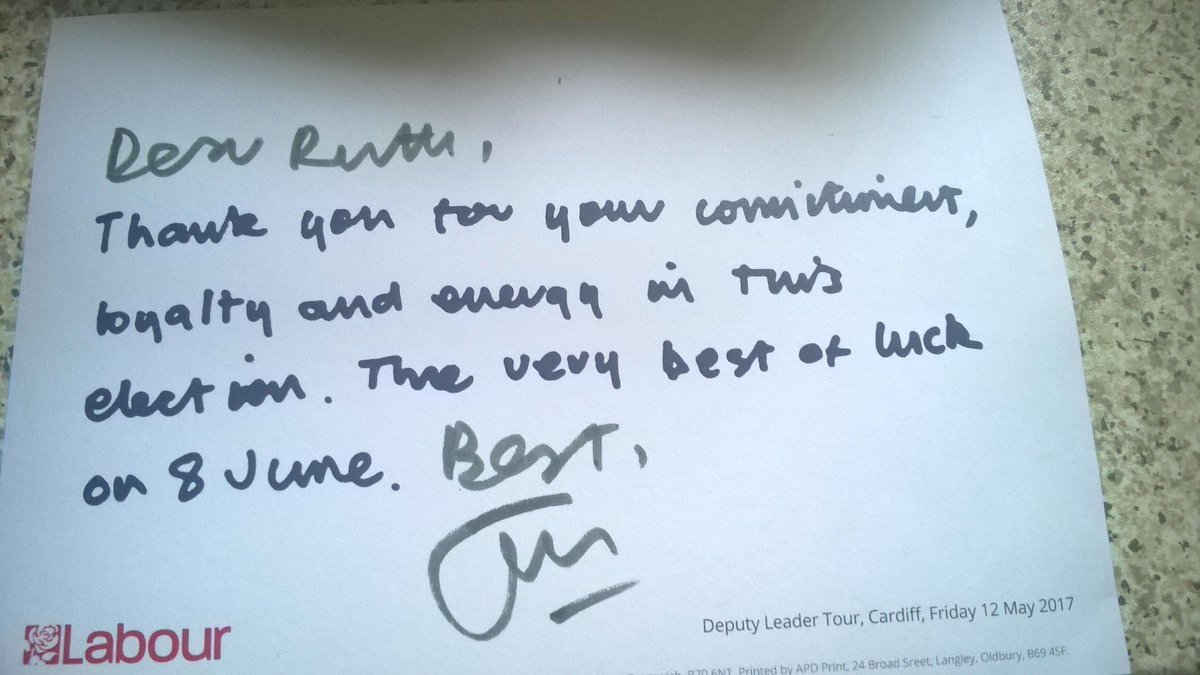 Dear Ruth,
Thank you for your commitment,
loyalty and energy in this
election. The very best of luck
on 8 June. Best,
Labour
Deputy Leader Tour, Cardiff, Friday 12 May 2017
B70 6NT. Printed by APD Print, 24 Broad Sreet, Langley, Oldbury, B69 4SF.